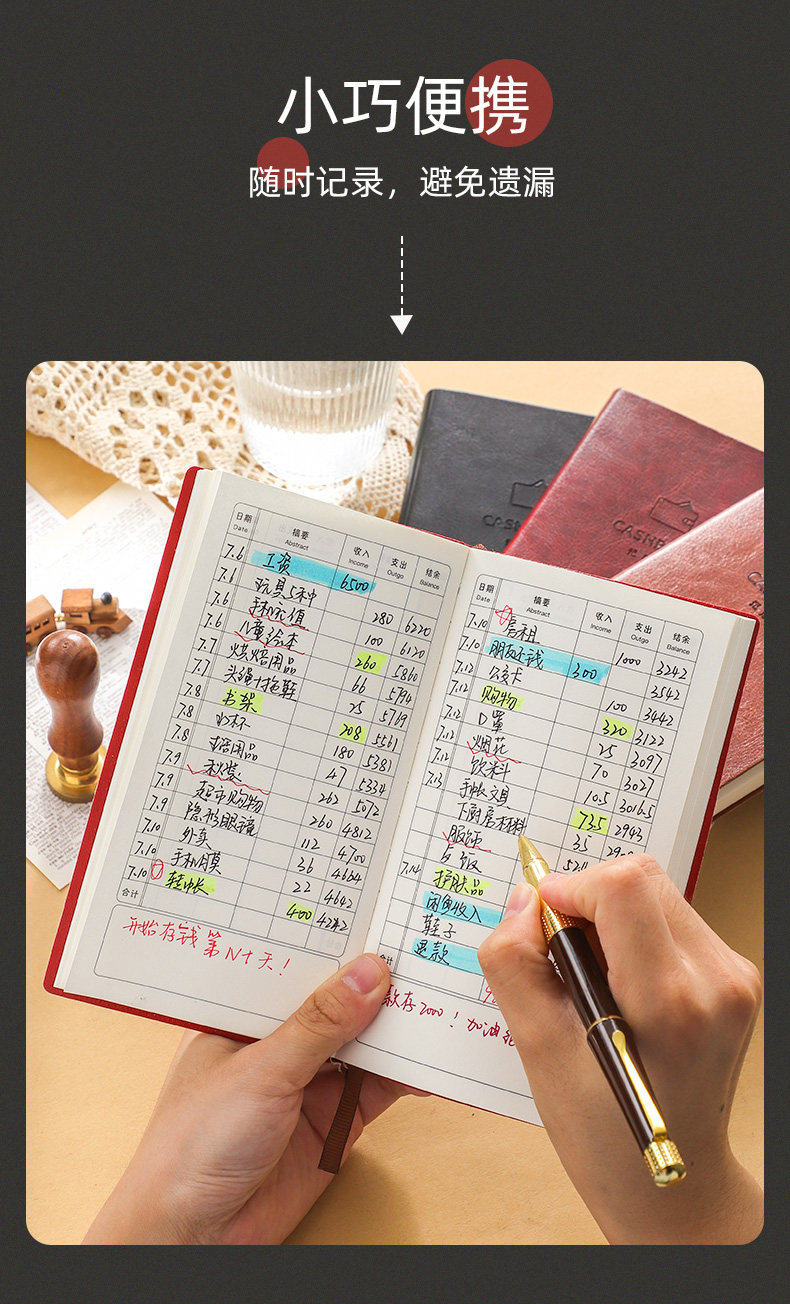 小巧便携
随时记录，避免遗漏
日期 摘要 收入 支出 结余
Date Abstract Income Outgo Balance
7.6 工资 6500
7.6 玩具5种 280 6220
7.6 手机充值 100 6120
7.6 儿童绘本 260 5860
7.7 烘焙用品 66 5794
7.7 头绳+拖鞋 25 5769
7.8 书架 208 5561
7.8 水杯 180 5381
7.8 用品 47 5334
7.9 262 5072
7.9 超市购物 260 4812
7.9 隐形眼镜 112 4700
7.10 外卖 36 4664
7.10 手机膜 22 4642
7.10 400 4242
合计
开始存钱第N+天！
日期 摘要 收入 支出 结余
Date Abstract Income Outgo Balance
7.10 房租 1000 3242
7.10 朋友还钱 300 3542
7.12 公交卡 100 3442
7.12 购物 320 3122
7.12 口罩 25 3097
7.12 烟花 70 3027
7.12 饮料 10.5 3016.5
7.13 手帐文具 73.5 2943
下厨房材料 35
服饰
护肤品
7.14
闲鱼收入
鞋子
退款
合计
款存2000！加油